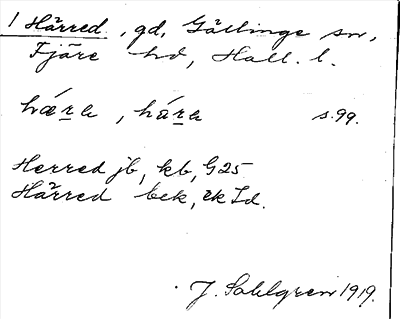 1 Härred, gd, Gällinge sn,
Fjäre hd, Hall. l.
hǽrɛ, hárɛ s. 99.
Herred jb, kb, G25
Härred bek, ek Ld.
J. Sahlgren 1919.